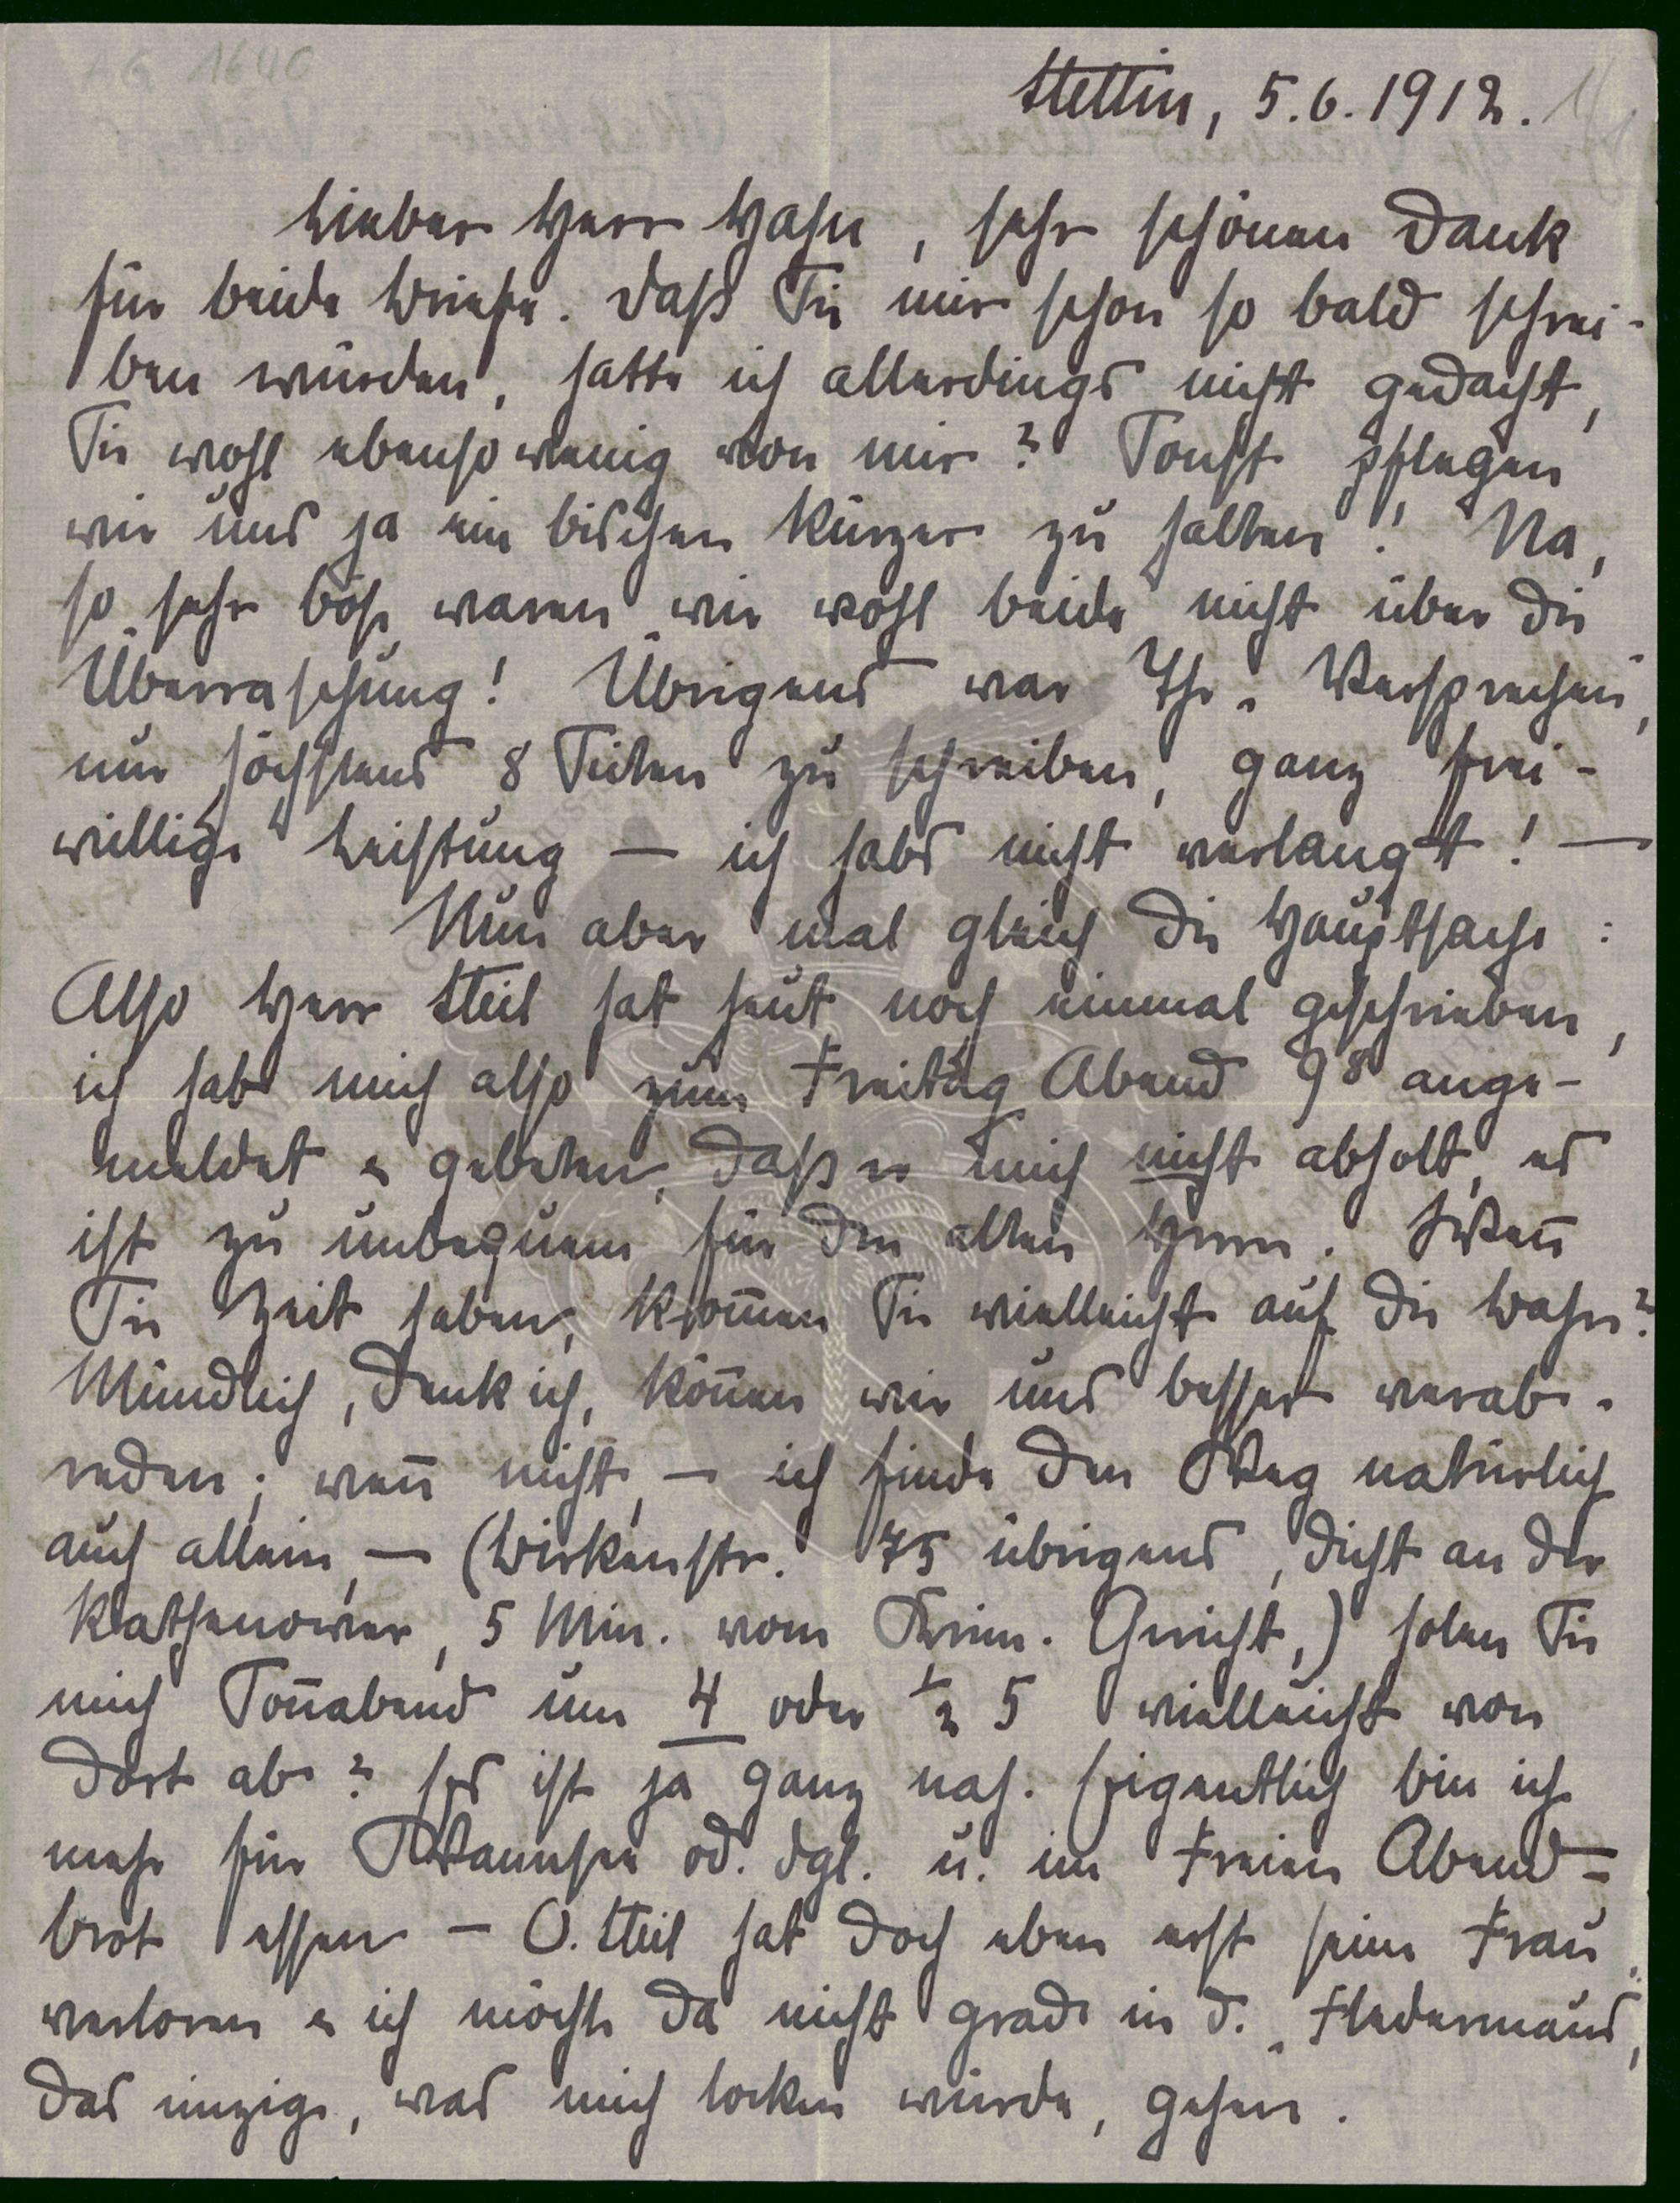 AG 1640
Stettin, 5.6.1912.
Lieber Herr Hahn, sehr schönen Dank
für beide Briefe. Daß Sie mir schon so bald schrei-
ben würden, hatte ich allerdings nicht gedacht,
Sie wohl ebensowenig von mir? Sonst pflegen
wir uns ja ein bischen kürzer zu halten! Na,
so sehr bös waren wir wohl beide nicht über die
Überraschung! Übrigens war Ihr Versprechen,
nur höchstens 8 Seiten zu schreiben, ganz frei-
willige Leistung — ich habs nicht verlangt! —
Nun aber mal gleich die Hauptsache:
Also Herr Steil hat heut noch einmal geschrieben,
ich habe mich also zum Freitag Abend 9⁸ ange-
meldet & gebeten, daß er mich nicht abholt, es
ist zu unbequem für den alten Herrn. Wenn̄
Sie Zeit haben, kom̄en Sie vielleicht auf die Bahn?
Mündlich, denk ich, kön̄en wir uns besser verab-
reden; wen̄ nicht, — ich finde den Weg natürlich
auch allein, — (Birkenstr. 75 übrigens, dicht an der
Rathenower, 5 Min. vom Krim. Gericht,) holen Sie
mich Son̄abend um 4 oder ½ 5 vielleicht von
dort ab? Es ist ja ganz nah. Eigentlich bin ich
mehr für Wannsee od. dgl. u. im Freien Abend=
brot essen — O. Steil hat doch eben erst seine Frau
verloren & ich möchte da nicht grade in d. „Fledermaus“,
das einzige, was mich locken würde, gehen.